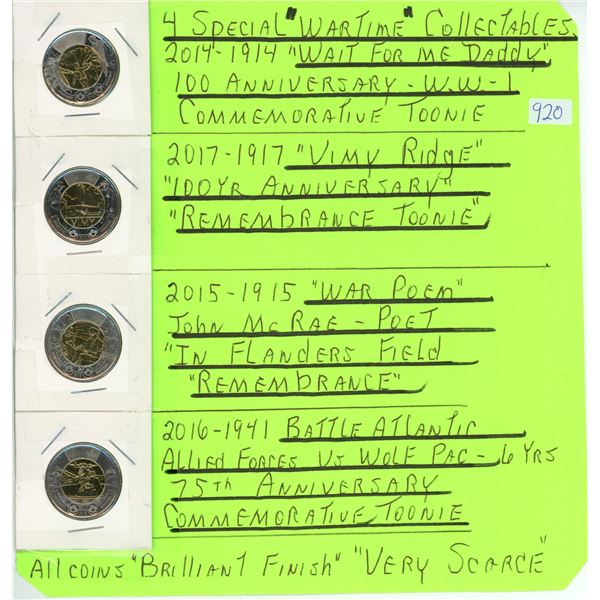 4 Special "Wartime" Collectables
2014-1914 "Wait For Me Daddy"
100 Anniversary - W.W-1
Commemorative Toonie
920
2017-1917 "Vimy Ridge"
"100Yr Anniversary"
"Remembrance Toonie"
2015-1915 "War Poem"
John McRae - Poet
"In Flanders Field
"Remembrance"
2016-1941 Battle Atlantic
Allied Forces Vs Wolf Pac - 6 Yrs
75th Anniversary
Commemorative Toonie
All coins "Brilliant Finish" "Very Scarce"
VIMY